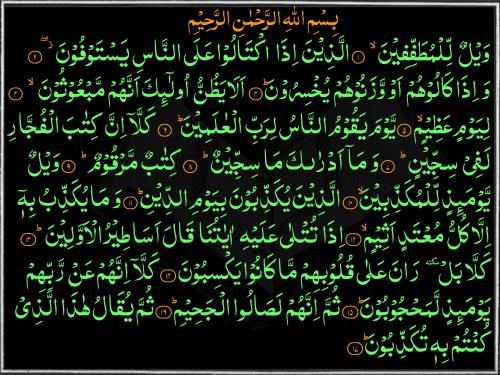 بِسْمِ اللهِ الرَّحْمٰنِ الرَّحِيْمِ
وَيْلٌ لِّلْمُطَفِّفِيْنَ ۙ﴿۱﴾ الَّذِيْنَ اِذَا اكْتَالُوْا عَلَى النَّاسِ يَسْتَوْفُوْنَ ۖ﴿۲﴾
وَ اِذَا كَالُوْهُمْ اَوْ وَّزَنُوْهُمْ يُخْسِرُوْنَ ؕ﴿۳﴾ اَلَا يَظُنُّ اُولٰٓئِكَ اَنَّهُمْ مَّبْعُوْثُوْنَ ۙ﴿۴﴾
لِيَوْمٍ عَظِيْمٍ ۙ﴿۵﴾ يَّوْمَ يَقُوْمُ النَّاسُ لِرَبِّ الْعٰلَمِيْنَ ؕ﴿۶﴾ كَلَّاۤ اِنَّ كِتٰبَ الْفُجَّارِ
لَفِيْ سِجِّيْنٍ ؕ﴿۷﴾ وَ مَاۤ اَدْرٰىكَ مَا سِجِّيْنٌ ؕ﴿۸﴾ كِتٰبٌ مَّرْقُوْمٌ ؕ﴿۹﴾ وَيْلٌ
يَّوْمَىِٕذٍ لِّلْمُكَذِّبِيْنَ ۙ﴿۱۰﴾ الَّذِيْنَ يُكَذِّبُوْنَ بِيَوْمِ الدِّيْنِ ؕ﴿۱۱﴾ وَ مَا يُكَذِّبُ بِهٖۤ
اِلَّا كُلُّ مُعْتَدٍ اَثِيْمٍ ۙ﴿۱۲﴾ اِذَا تُتْلٰى عَلَيْهِ اٰيٰتُنَا قَالَ اَسَاطِيْرُ الْاَوَّلِيْنَ ؕ﴿۱۳﴾
كَلَّا بَلْ ٚ رَانَ عَلٰى قُلُوْبِهِمْ مَّا كَانُوْا يَكْسِبُوْنَ ﴿۱۴﴾ كَلَّاۤ اِنَّهُمْ عَنْ رَّبِّهِمْ
يَوْمَىِٕذٍ لَّمَحْجُوْبُوْنَ ؕ﴿۱۵﴾ ثُمَّ اِنَّهُمْ لَصَالُوا الْجَحِيْمِ ؕ﴿۱۶﴾ ثُمَّ يُقَالُ هٰذَا الَّذِيْ
كُنْتُمْ بِهٖ تُكَذِّبُوْنَ ؕ﴿۱۷﴾